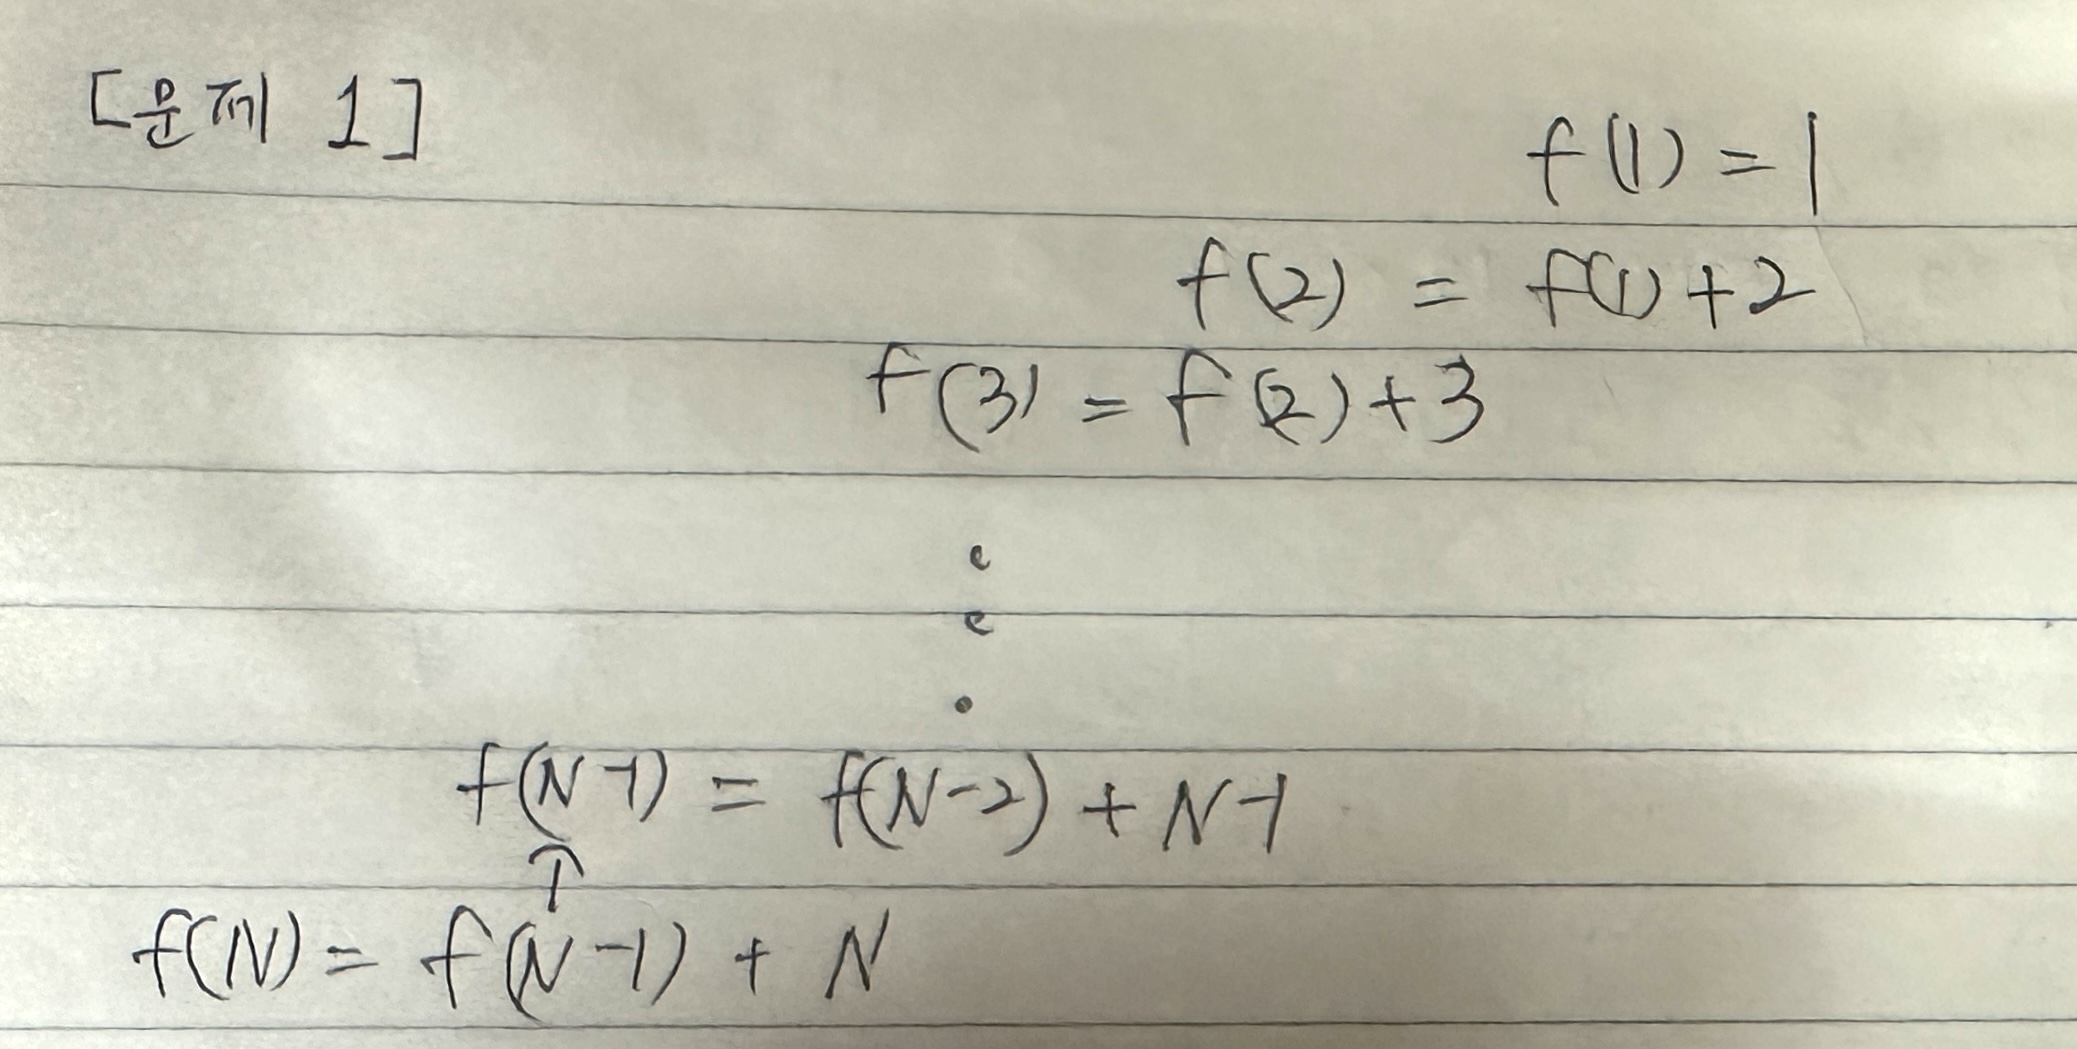 [문제 1]
f(1) = 1
f(2) = f(1) + 2
f(3) = f(2) + 3
.
.
.
f(N-1) = f(N-2) + N-1
↑
f(N) = f(N-1) + N